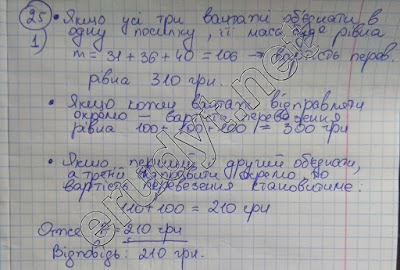 25
1
• Якщо усі три вантажі об'єднати в
одну посилку, її маса буде рівна
m = 31 + 36 + 40 = 106 → вартість перев.
рівна 310 грн.
• Якщо кожен вантаж відправляти
окремо – вартість перевезення
рівна 100 + 100 + 100 = 300 грн
• Якщо перший і другий об'єднати,
а третій відправити окремо, то
вартість перевезення становитиме:
110 + 100 = 210 грн
Отже 210 грн
Відповідь: 210 грн.
erudyt.net